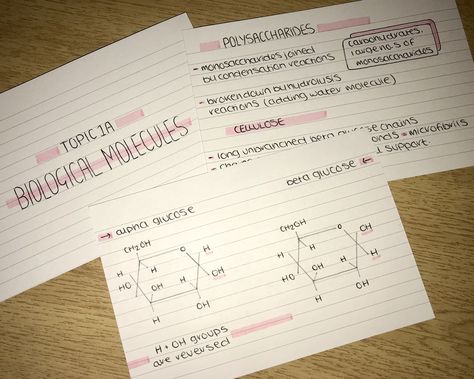 TOPIC 1A
BIOLOGICAL MOLECULES
POLYSACCHARIDES
carbohydrates.
large no.s of
monosaccharides
- monosaccharides joined
by condensation reactions
- broken down by hydrolysis
reactions (adding water molecule)
CELLULOSE
- long unbranched beta glucose chains
= microfibrils
support.
→ alpha glucose
beta glucose ←
CH2OH
O
H
H
H
OH
HO
OH
H
H
OH
CH2OH
O
OH
H
H
H
HO
OH
H
H
OH
H + OH groups
are reversed